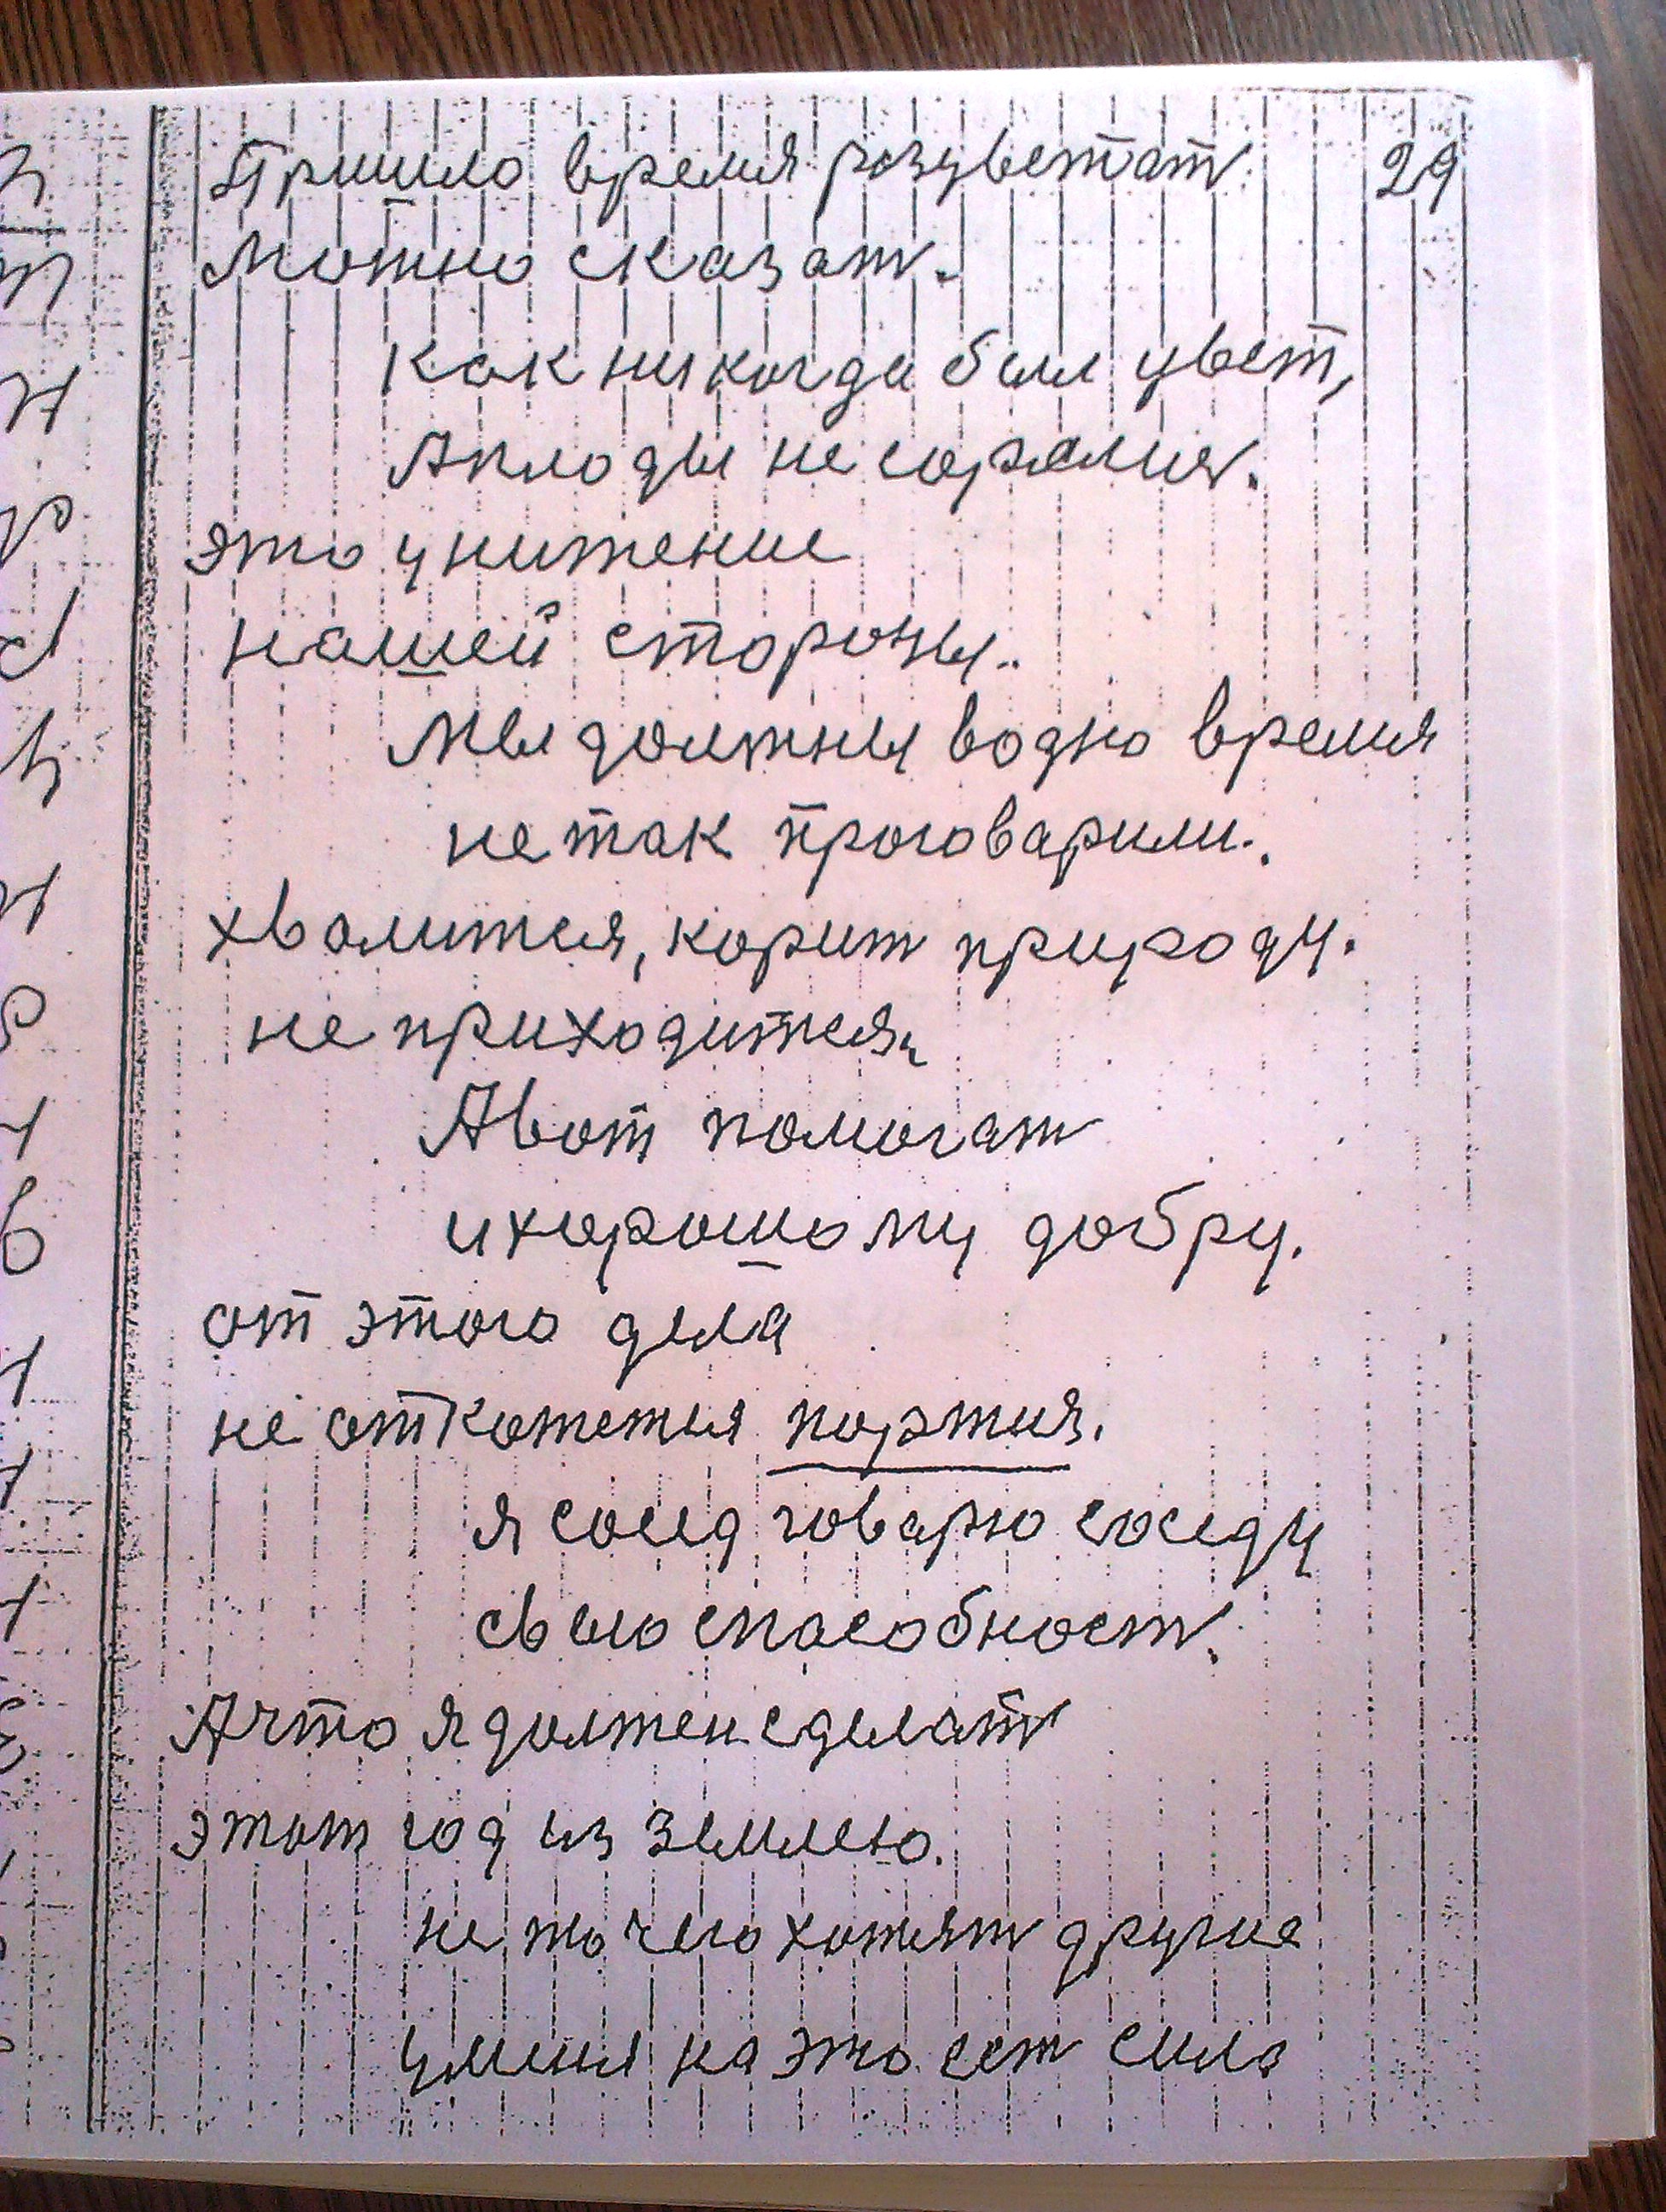 Пришло время розцветат 29
Можно сказат.
как никогда был цвет,
А плоды не сорвалис.
это унижение
нашей стороны..
Мы должны водно время
не так проговарили.
хвалится, корит природу.
не приходится,
А вот помогат
и хорошому добру.
от этого дела
не откажется партия.
я сосед говарю соседу
свою спасобност.
А что я должен сделат
этот год из землею.
не то чего хотят другие
уминя на это ест сила